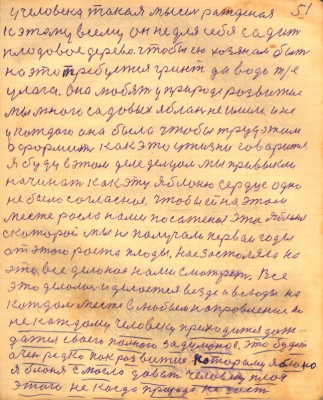 51
у человека такая мысль
к этому всему он не для себя садит
плодовое дерево. чтобы ею хозяном быт
на это требуется грунт да водь т/е
влага. Она любят у природе развитие
мы много садовых яблан не имели и не
у каждого она была чтобы труд этом
оформит как это у жизни говорится
я буду в этом деле делцом мы привыкли
начинат как эту яблоню сердце одно
не было согласное, чтобы на этом
месте росла нами посаженая эта яблоня
с которой мы и получали первои годы
от этого роста плоды, нас застовляла на
это все делоное нами смотрет. Все
это делалося и делается везде и всюды на
каждом месте в любом направлении но
не каждому человеку приходится дож-
датся своего полного задуманое, это будет
очен редко по развитие которому яблоко
яблоня смогла дават человеку плод
этого не когда природа не даст